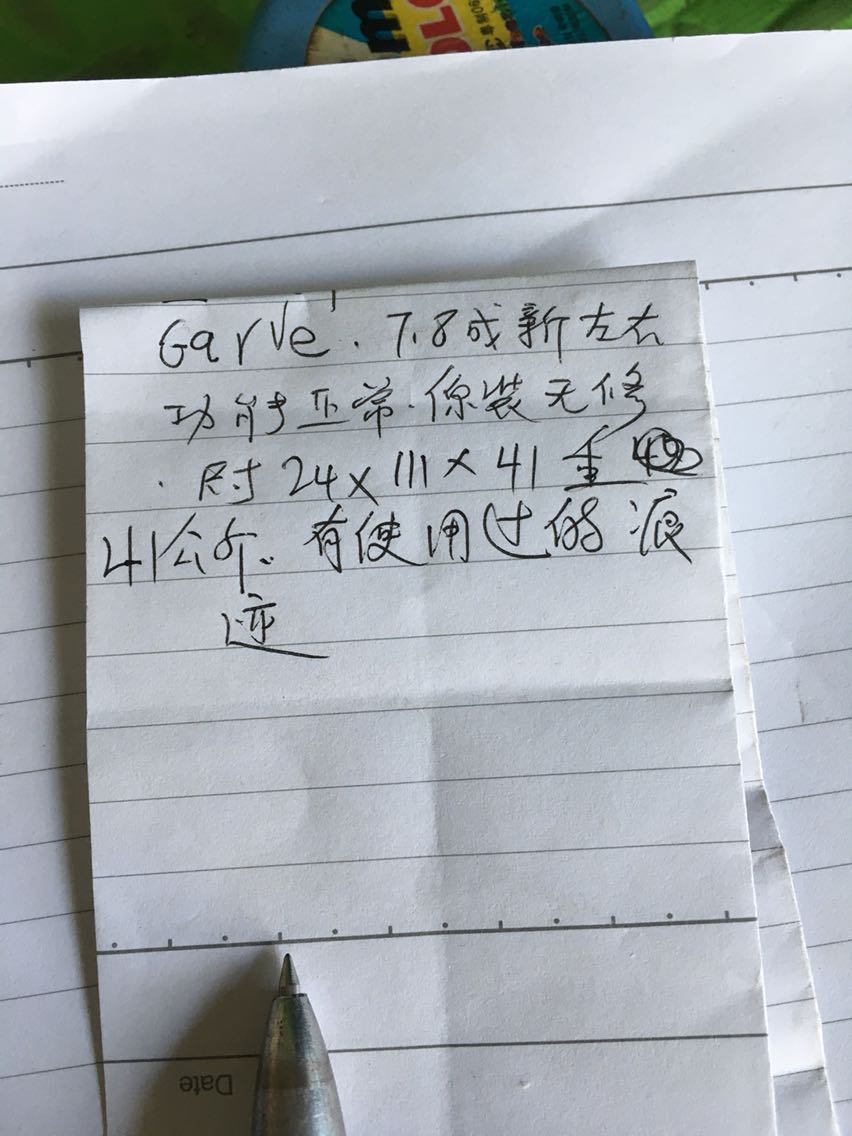 Garve. 7.8成新左右
功能正常.原装无修
.尺寸24x111x41重
41公斤.有使用过的痕
迹
Date